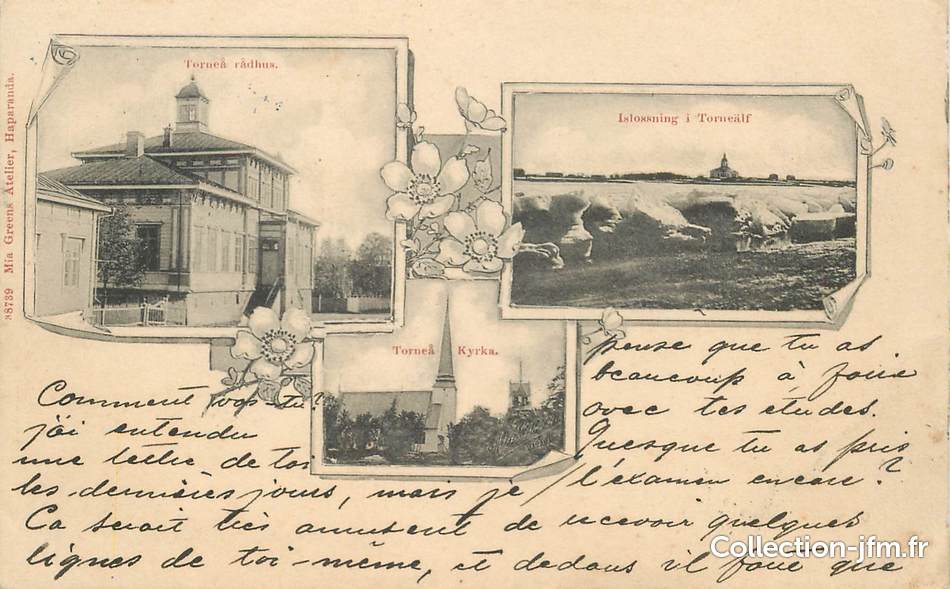 Torneå rådhus.
Islossning i Torneälf
Torneå Kyrka.
38739 Mia Greens Atelier, Haparanda.
Comment vas-tu?
j'ai entendu
une lettre de toi
les dernières jours, mais je
pense que tu as
beaucoup à faire
avec tes études.
Quesque tu as pris
l'examen encore?
Ca serait très amusent de recevoir quelques
lignes de toi-même, et dedans il faut que
Collection-jfm.fr